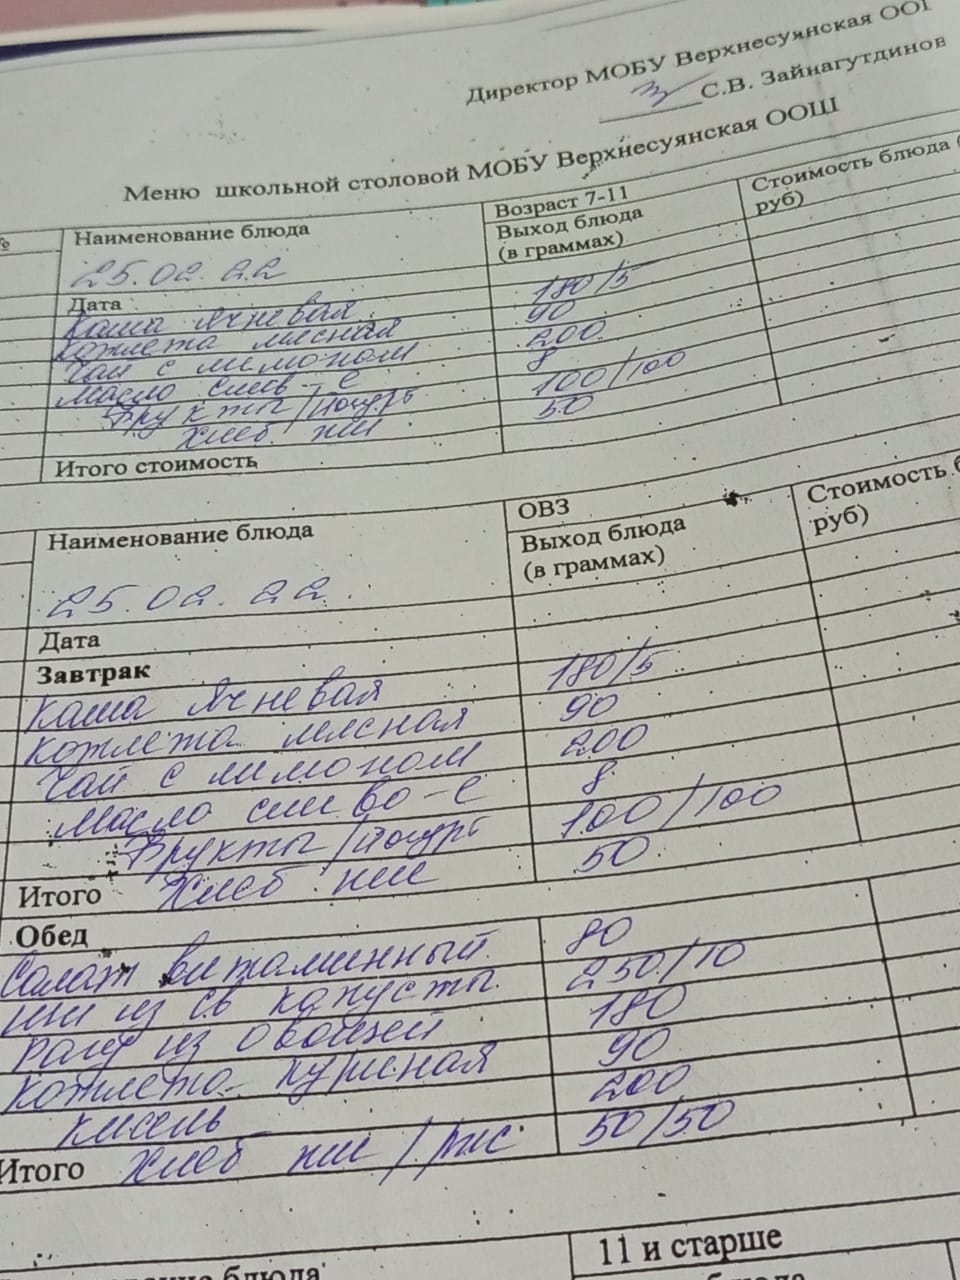 Директор МОБУ Верхнесуянская ООШ
С.В. Зайнагутдинов
Меню школьной столовой МОБУ Верхнесуянская ООШ
№ Наименование блюда Возраст 7-11 Стоимость блюда (
Выход блюда руб)
(в граммах)
25.02.22
Дата 180/5
Каша ячневая 90
Котлета мясная 200
Чай с лимоном 8
Масло слив-е 100/100
Фрукты/йогурт 50
Хлеб пш
Итого стоимость
Наименование блюда ОВЗ Стоимость б
Выход блюда руб)
(в граммах)
25.02.22.
Дата
Завтрак 180/5
Каша ячневая 90
Котлета мясная 200
Чай с лимоном 8
Масло сливо-е 100/100
Фрукты/йогурт 50
Итого Хлеб пш
Обед 80
Салат витаминный 250/10
щи из св капусты 180
рагу из овощей 90
Котлета куриная 200
кисель 50/50
Итого Хлеб пш/рж
11 и старше
блюда